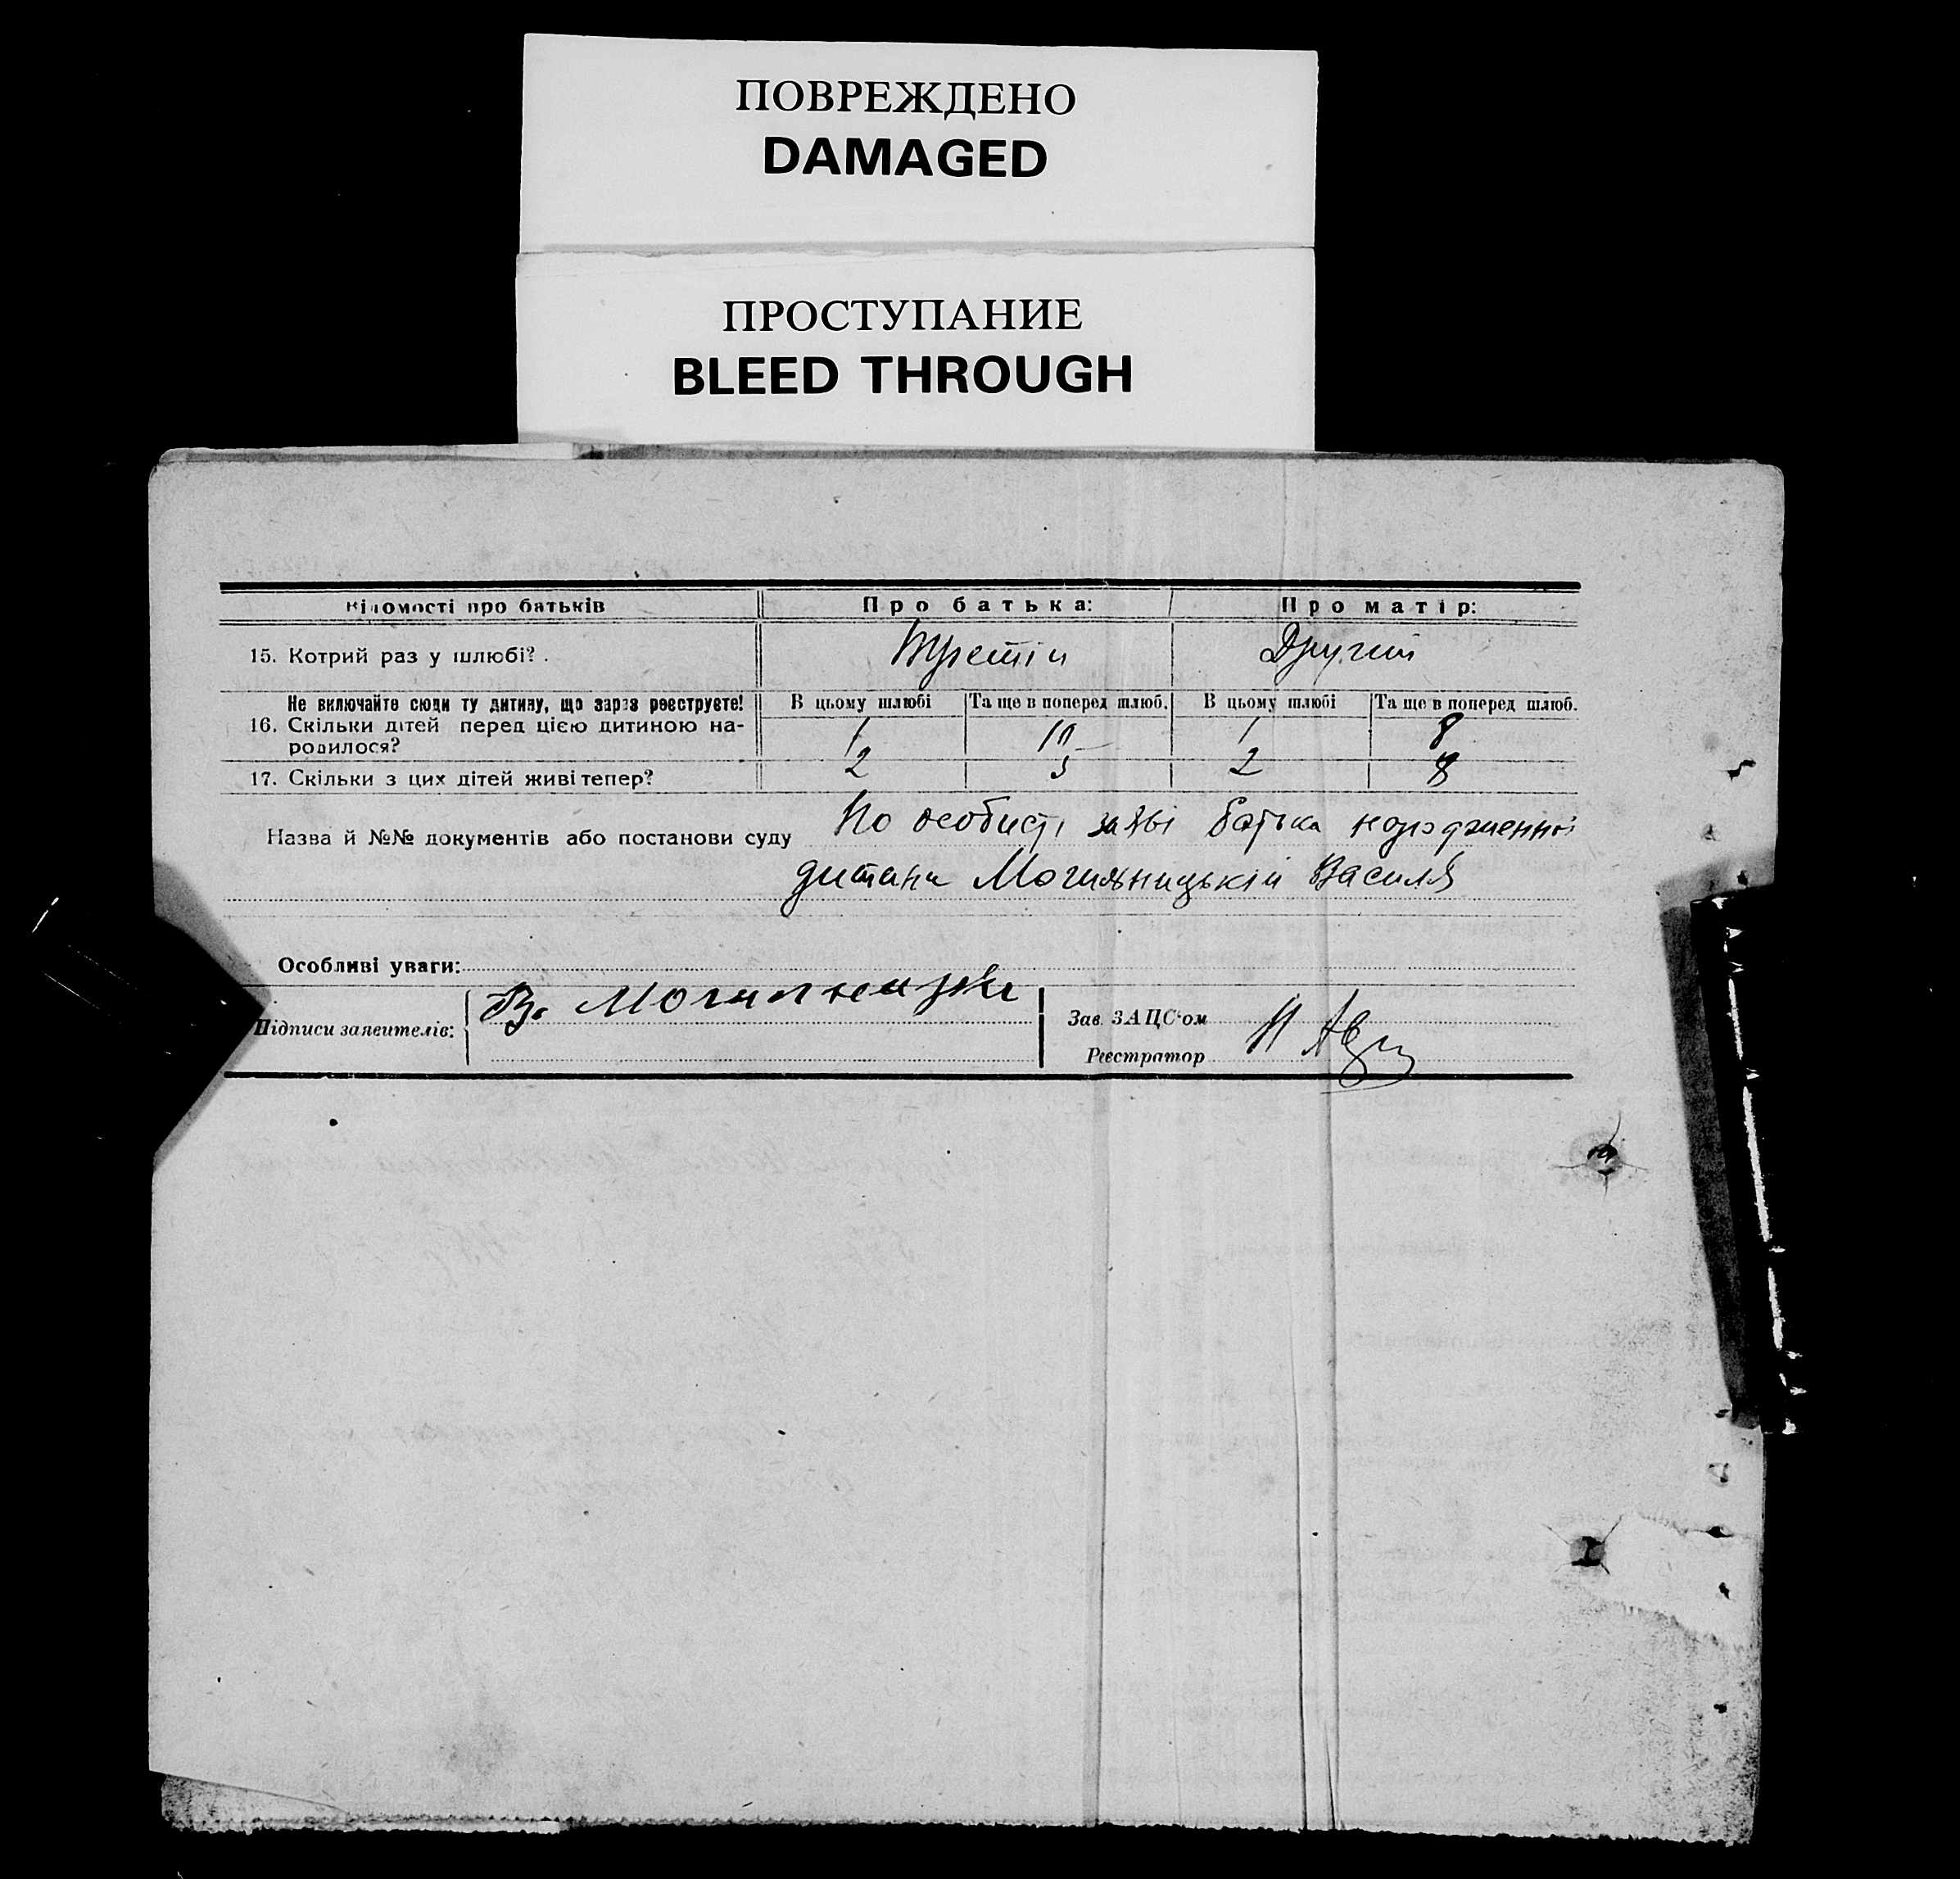 ПОВРЕЖДЕНО
DAMAGED
ПРОСТУПАНИЕ
BLEED THROUGH
Відомості про батьків Про батька: Про матір:
15. Котрий раз у шлюбі? . Третій Другий
Не включайте сюди ту дитину, що зараз реєструєте! В цьому шлюбі Та ще в поперед шлюб. В цьому шлюбі Та ще в поперед шлюб.
16. Скільки дітей перед цією дитиною на- 1 10 1 8
родилося?
17. Скільки з цих дітей живі тепер? 2 5 2 8
Назва й №№ документів або постанови суду По особисті заяві батька народженної
дитани Могильницькій Василя
Особливі уваги:
Підписи заявителів: В. Могильницкі
Зав. ЗАЦС'ом
Реєстратор